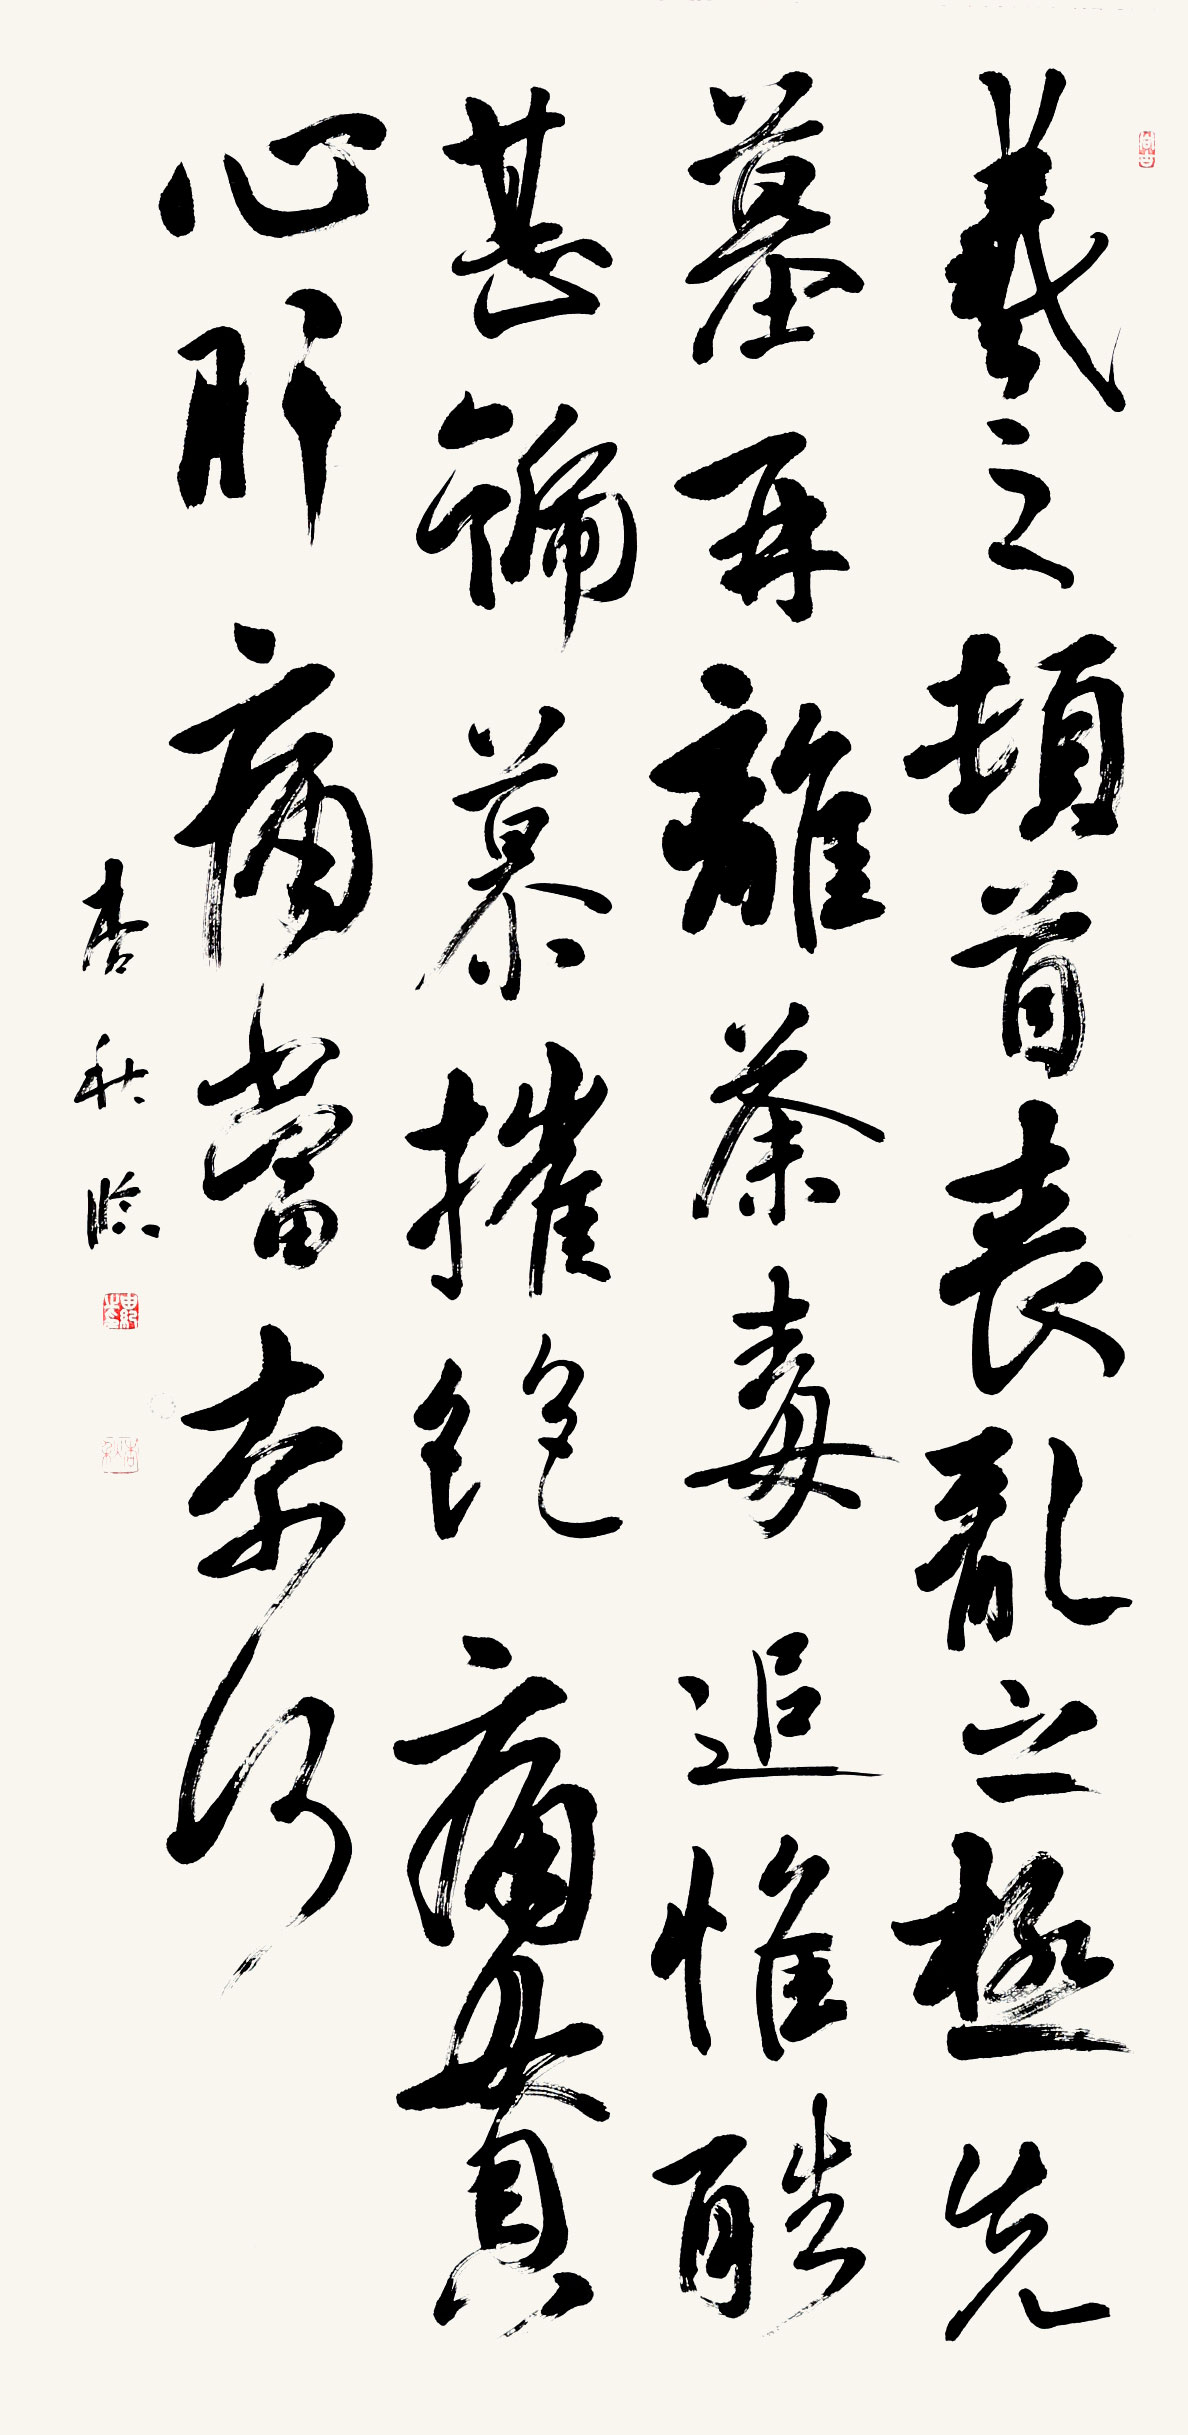 羲之頓首喪亂之極先
墓再離荼毒追惟酷
甚號慕摧絕痛貫
心肝痛當奈何
杏秋臨